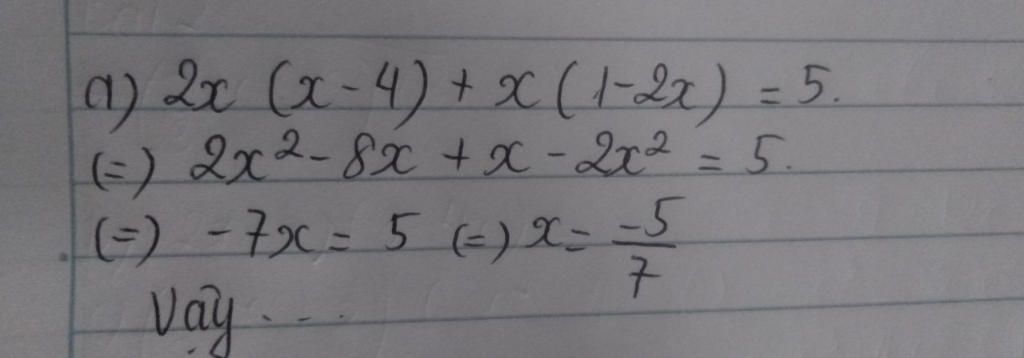 a) 2x (x - 4) + x (1 - 2x) = 5.
(=) 2x² - 8x + x - 2x² = 5.
(=) -7x = 5 (=) x = -5/7
Vậy ....